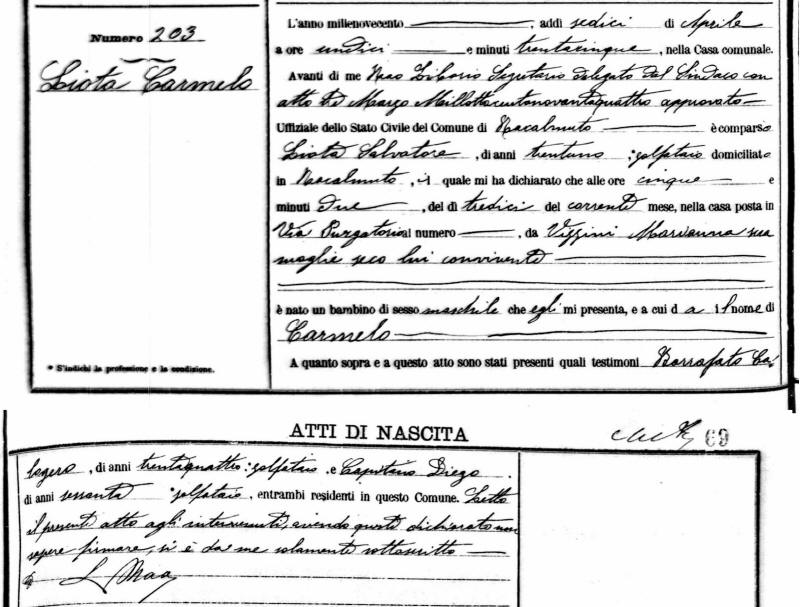 Numero 203
Liota Carmelo
* S'indichi la professione e la condizione.
L'anno millenovecento, addì sedici di Aprile
a ore undici e minuti trentacinque, nella Casa comunale.
Avanti di me Liborio Segretario delegato dal Sindaco con
atto tre Marzo Millottocentonovantaquattro approvato
Uffiziale dello Stato Civile del Comune di Racalmuto è comparso
Liota Salvatore, di anni trentuno; zolfataio domiciliato
in Racalmuto, il quale mi ha dichiarato che alle ore cinque e
minuti due, del dì tredici del corrente mese, nella casa posta in
Via Purgatorio al numero, da Vizzini Marianna sua
moglie seco lui convivente
è nato un bambino di sesso maschile che egli mi presenta, e a cui dà il nome di
Carmelo
A quanto sopra e a questo atto sono stati presenti quali testimoni Borrafato Ca
ATTI DI NASCITA
69
logero, di anni trentaquattro; zolfataio e Capitano Diego
di anni sessanta zolfataio, entrambi residenti in questo Comune. Letto
il presente atto agli intervenuti, avendo questi dichiarato non
sapere firmare, si è da me solamente sottoscritto